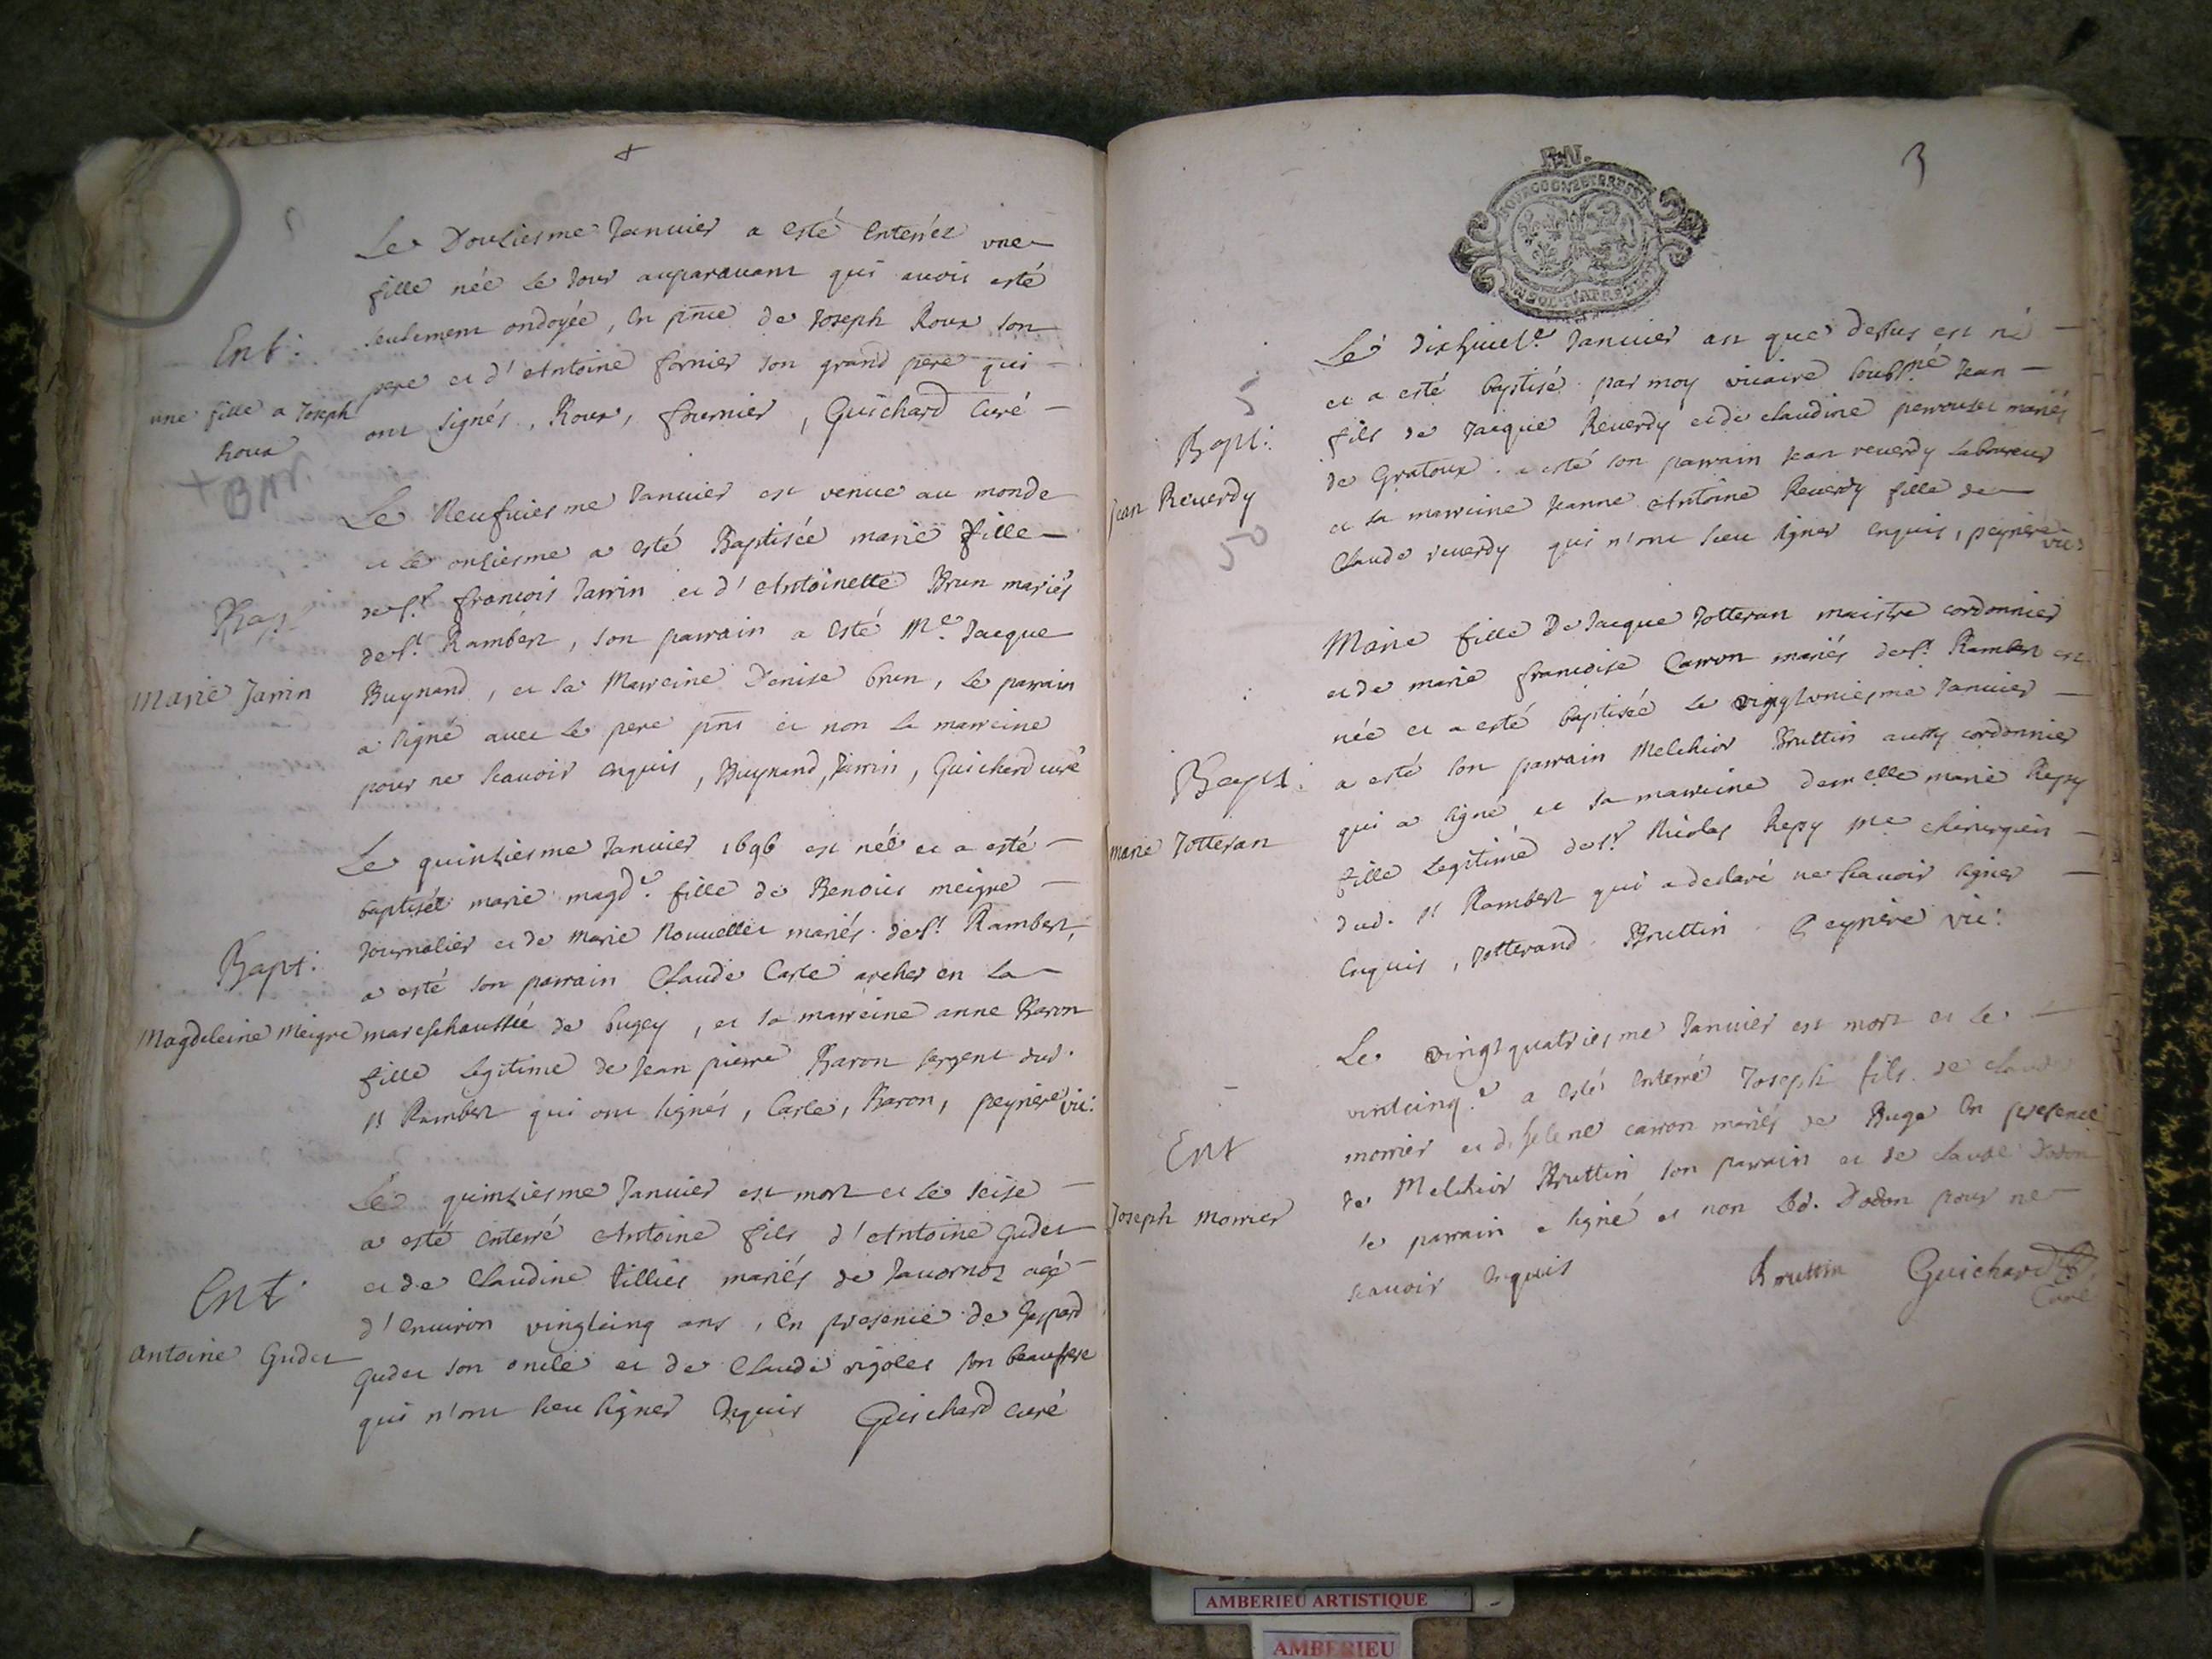 Le Douziesme Januier a esté enterrée vne
fille née le Jour auparauant qui auoit esté
seulement ondoyée, en pnce de Joseph Roux son
Ent:
pere et d'Antoine fornier son grand pere qui
une fille a Joseph
Roux
ont signés, Roux, fournier, Guichard Curé
+ BAP.
Le Neufuiesme Januier est venue au monde
et le onziesme a esté Baptisée marie fille
de Sr. francois Jarrin et d'Antoinette Brun mariés
Bap
de St. Rambert, son parrain a esté Me. Jacque
Marie Jarrin
Buynand, et sa Marreine Denise brun, le parrain
a signé auec le pere pnt et non la marreine
pour ne scauoir enquis, Buynand, Jarrin, Guichard curé
Le quinziesme Januier 1696 est née et a esté
baptisée marie magde. fille de Benoist meigre
Journalier et de Marie Nouuellet mariés de St. Rambert,
Bapt:
a esté son parrain Claude Carle archer en la
Magdeleine Meigre
mareschaussée de bugey, et sa marreine anne Baron
fille legitime de Jean pierre Baron sergent dud.
St Rambert qui ont signés, Carle, Baron, peyriere vic:
Le quinziesme Januier est mort et le seize
a esté enterré Antoine fils d'Antoine Gudet
et de Claudine tillier mariés de Jauornoz agé
Ent.
d'enuiron vingtcinq ans, en presence de Gaspard
Antoine Gudet
Gudet son oncle et de Claude rigolet son beaufrere
qui n'ont sceu signer enquis Guichard curé
3
BOURGOGNE ET BRESSE
Le dixhuicte. Januier an que dessus est né
et a esté baptisé par moy vicaire soubsné Jean
5
fils de Jacque Reuerdy et de claudine perrouset mariés
Bapt:
de Gratoux. a esté son parrain Jean reuerdy Laboureur
Jean Reuerdy
et sa marreine Jeanne Antoine Reuerdy fille de
50
Claude reuerdy qui n'ont sceu signer enquis, peyriere vic:
Marie fille De Jacque Jotteran maistre cordonnier
et de marie francoise Carron mariés de St. Rambert est
née et a esté baptisée le vingtvniesme Januier
Bapt:
a esté son parrain Melchior Bruttin aussy cordonnier
qui a signé, et sa marreine demelle marie Repy
marie Jotteran
fille Legitime de Sr. Nicolas Repy me chirurgien
dud. St Rambert qui a declaré ne scauoir signer
enquis, Jotterand Bruttin Peyriere vic:
Le vingtquatriesme Januier est mort et le
vintcinqe. a esté enterré Joseph fils de claude
Ent
morrier et d'helene carron mariés de Buge en presence
de Melchior Bruttin son parrain et de claude Dodon
Joseph Morrier
le parrain a signé et non led. Dodon pour ne
scauoir enquis Bruttin Guichard
Curé
AMBERIEU ARTISTIQUE
AMBERIEU